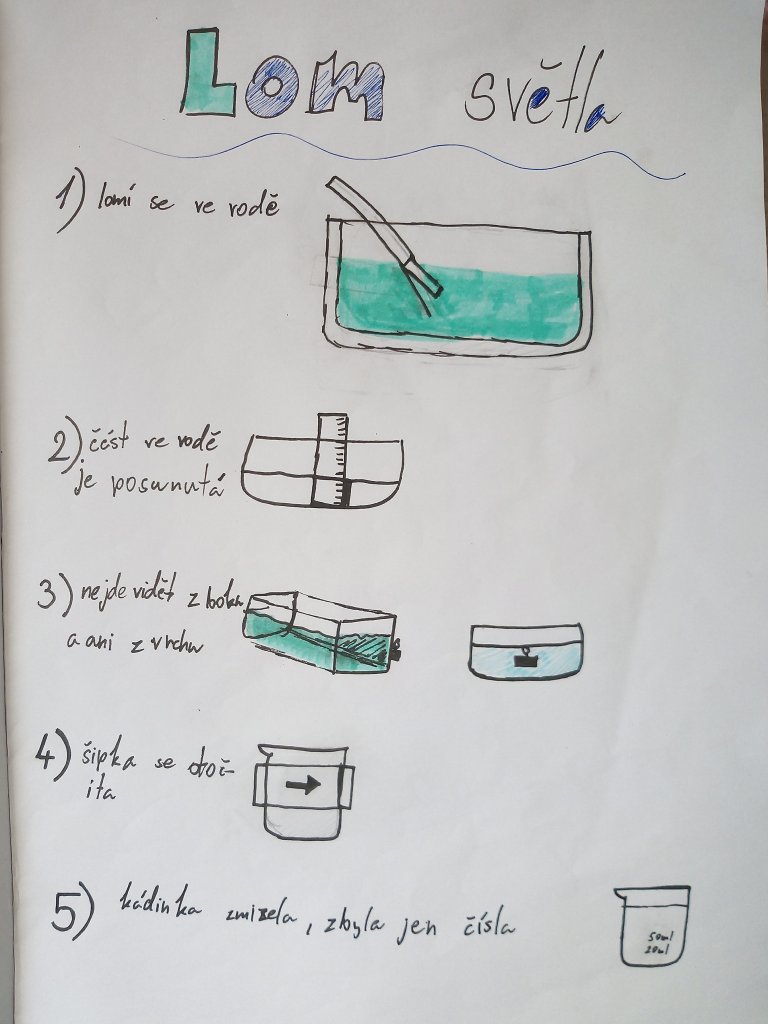 Lom světla
1) lomí se ve vodě
2) část ve vodě
je posunutá
3) nejde vidět z boku
a ani z vrchu
4) šipka se otoč-
ila
5) kádinka zmizela, zbyla jen čísla
50ml
20ml